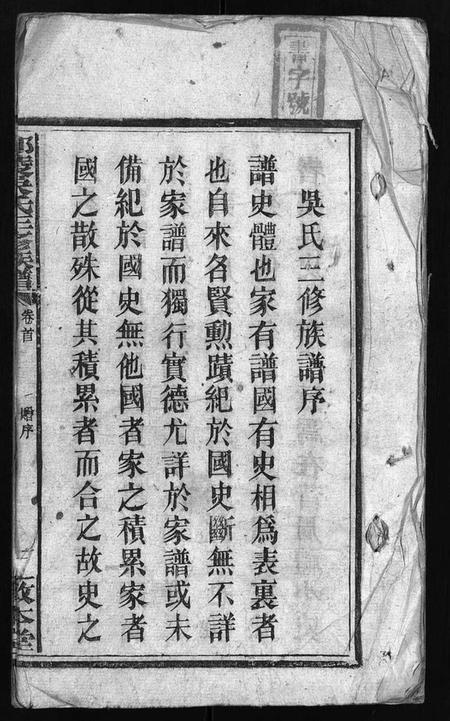 字號
吳氏三修族譜序
譜史體也家有譜國有史相爲表裏者
也自來各賢勳蹟紀於國史斷無不詳
於家譜而獨行實德尤詳於家譜或未
備紀於國史無他國者家之積累家者
國之散殊從其積累者而合之故史之
吳氏三修族譜
卷首
一
贈序
敦本堂